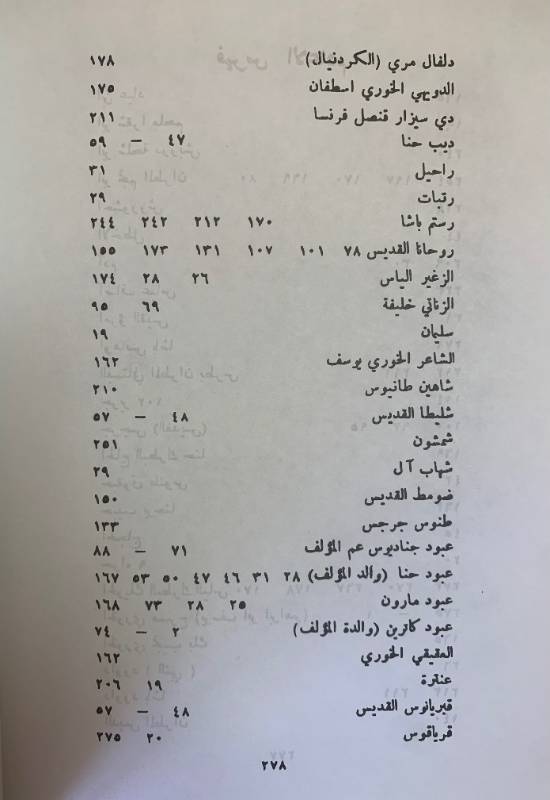 دلفال مري (الكردنيال) ١٧٨
الدويهي الخوري اسطفان ١٧٥
دي سيزار قنصل فرنسا ٢١١
ديب حنا ٤٧ — ٥٩
راحيل ٣١
رتبات ٢٩
رستم باشا ١٧٠ ٢١٢ ٢٤٢ ٢٤٤
روحانا القديس ٧٨ ١٠١ ١٠٧ ١٣١ ١٧٣ ١٥٥
الزغير الياس ٢٦ ٢٨ ١٧٤
الزناتي خليفة ٦٩ ٩٥
سليمان ١٩
الشاعر الخوري يوسف ١٦٢
شاهين طانيوس ٢١٠
شليطا القديس ٤٨ — ٥٧
شمشون ٢٥١
شهاب آل ٢٩
ضومط القديس ١٥٠
طنوس جرجس ١٣٣
عبود جناديوس عم المؤلف ٧١ — ٨٨
عبود حنا (والد المؤلف) ٢٨ ٣١ ٤٦ ٤٧ ٥٠ ٥٣ ١٦٧
عبود مارون ٢٥ ٢٨ ٧٣ ١٦٨
عبود كاترين (والدة المؤلف) ٢ — ٧٤
العقيقي الخوري ١٦٢
عنترة ١٩ ٢٠٦
قبريانوس القديس ٤٨ — ٥٧
قرياقوس ٢٠ ٢٧٥
٢٧٨